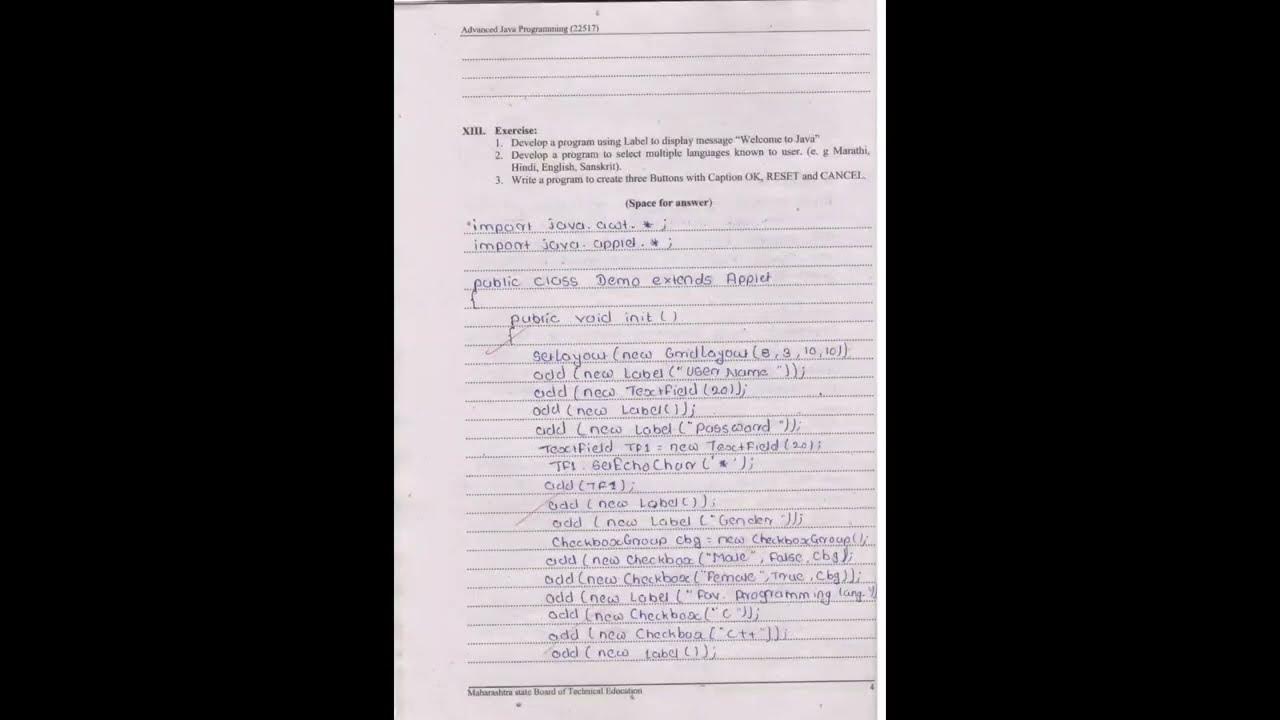 Advanced Java Programming (22517)
XIII. Exercise:
1. Develop a program using Label to display message "Welcome to Java"
2. Develop a program to select multiple languages known to user. (e. g Marathi,
Hindi, English, Sanskrit).
3. Write a program to create three Buttons with Caption OK, RESET and CANCEL.
(Space for answer)
import java.awt.*;
import java.applet.*;
public class Demo extends Applet
{
public void init()
{
setLayout(new GridLayout(8,3,10,10));
add(new Label("User Name"));
add(new TextField(20));
add(new Label());
add(new Label("Password"));
TextField TF1 = new TextField(20);
TF1.setEchoChar('*');
add(TF1);
add(new Label());
add(new Label("Gender"));
CheckboxGroup cbg = new CheckboxGroup();
add(new Checkbox("Male", False, cbg);
add(new Checkbox("Female", True, cbg));
add(new Label("Fav. Programming lang."))
add(new Checkbox("C"));
add(new Checkbox("C++"));
add(new label());
Maharashtra state Board of Technical Education
4